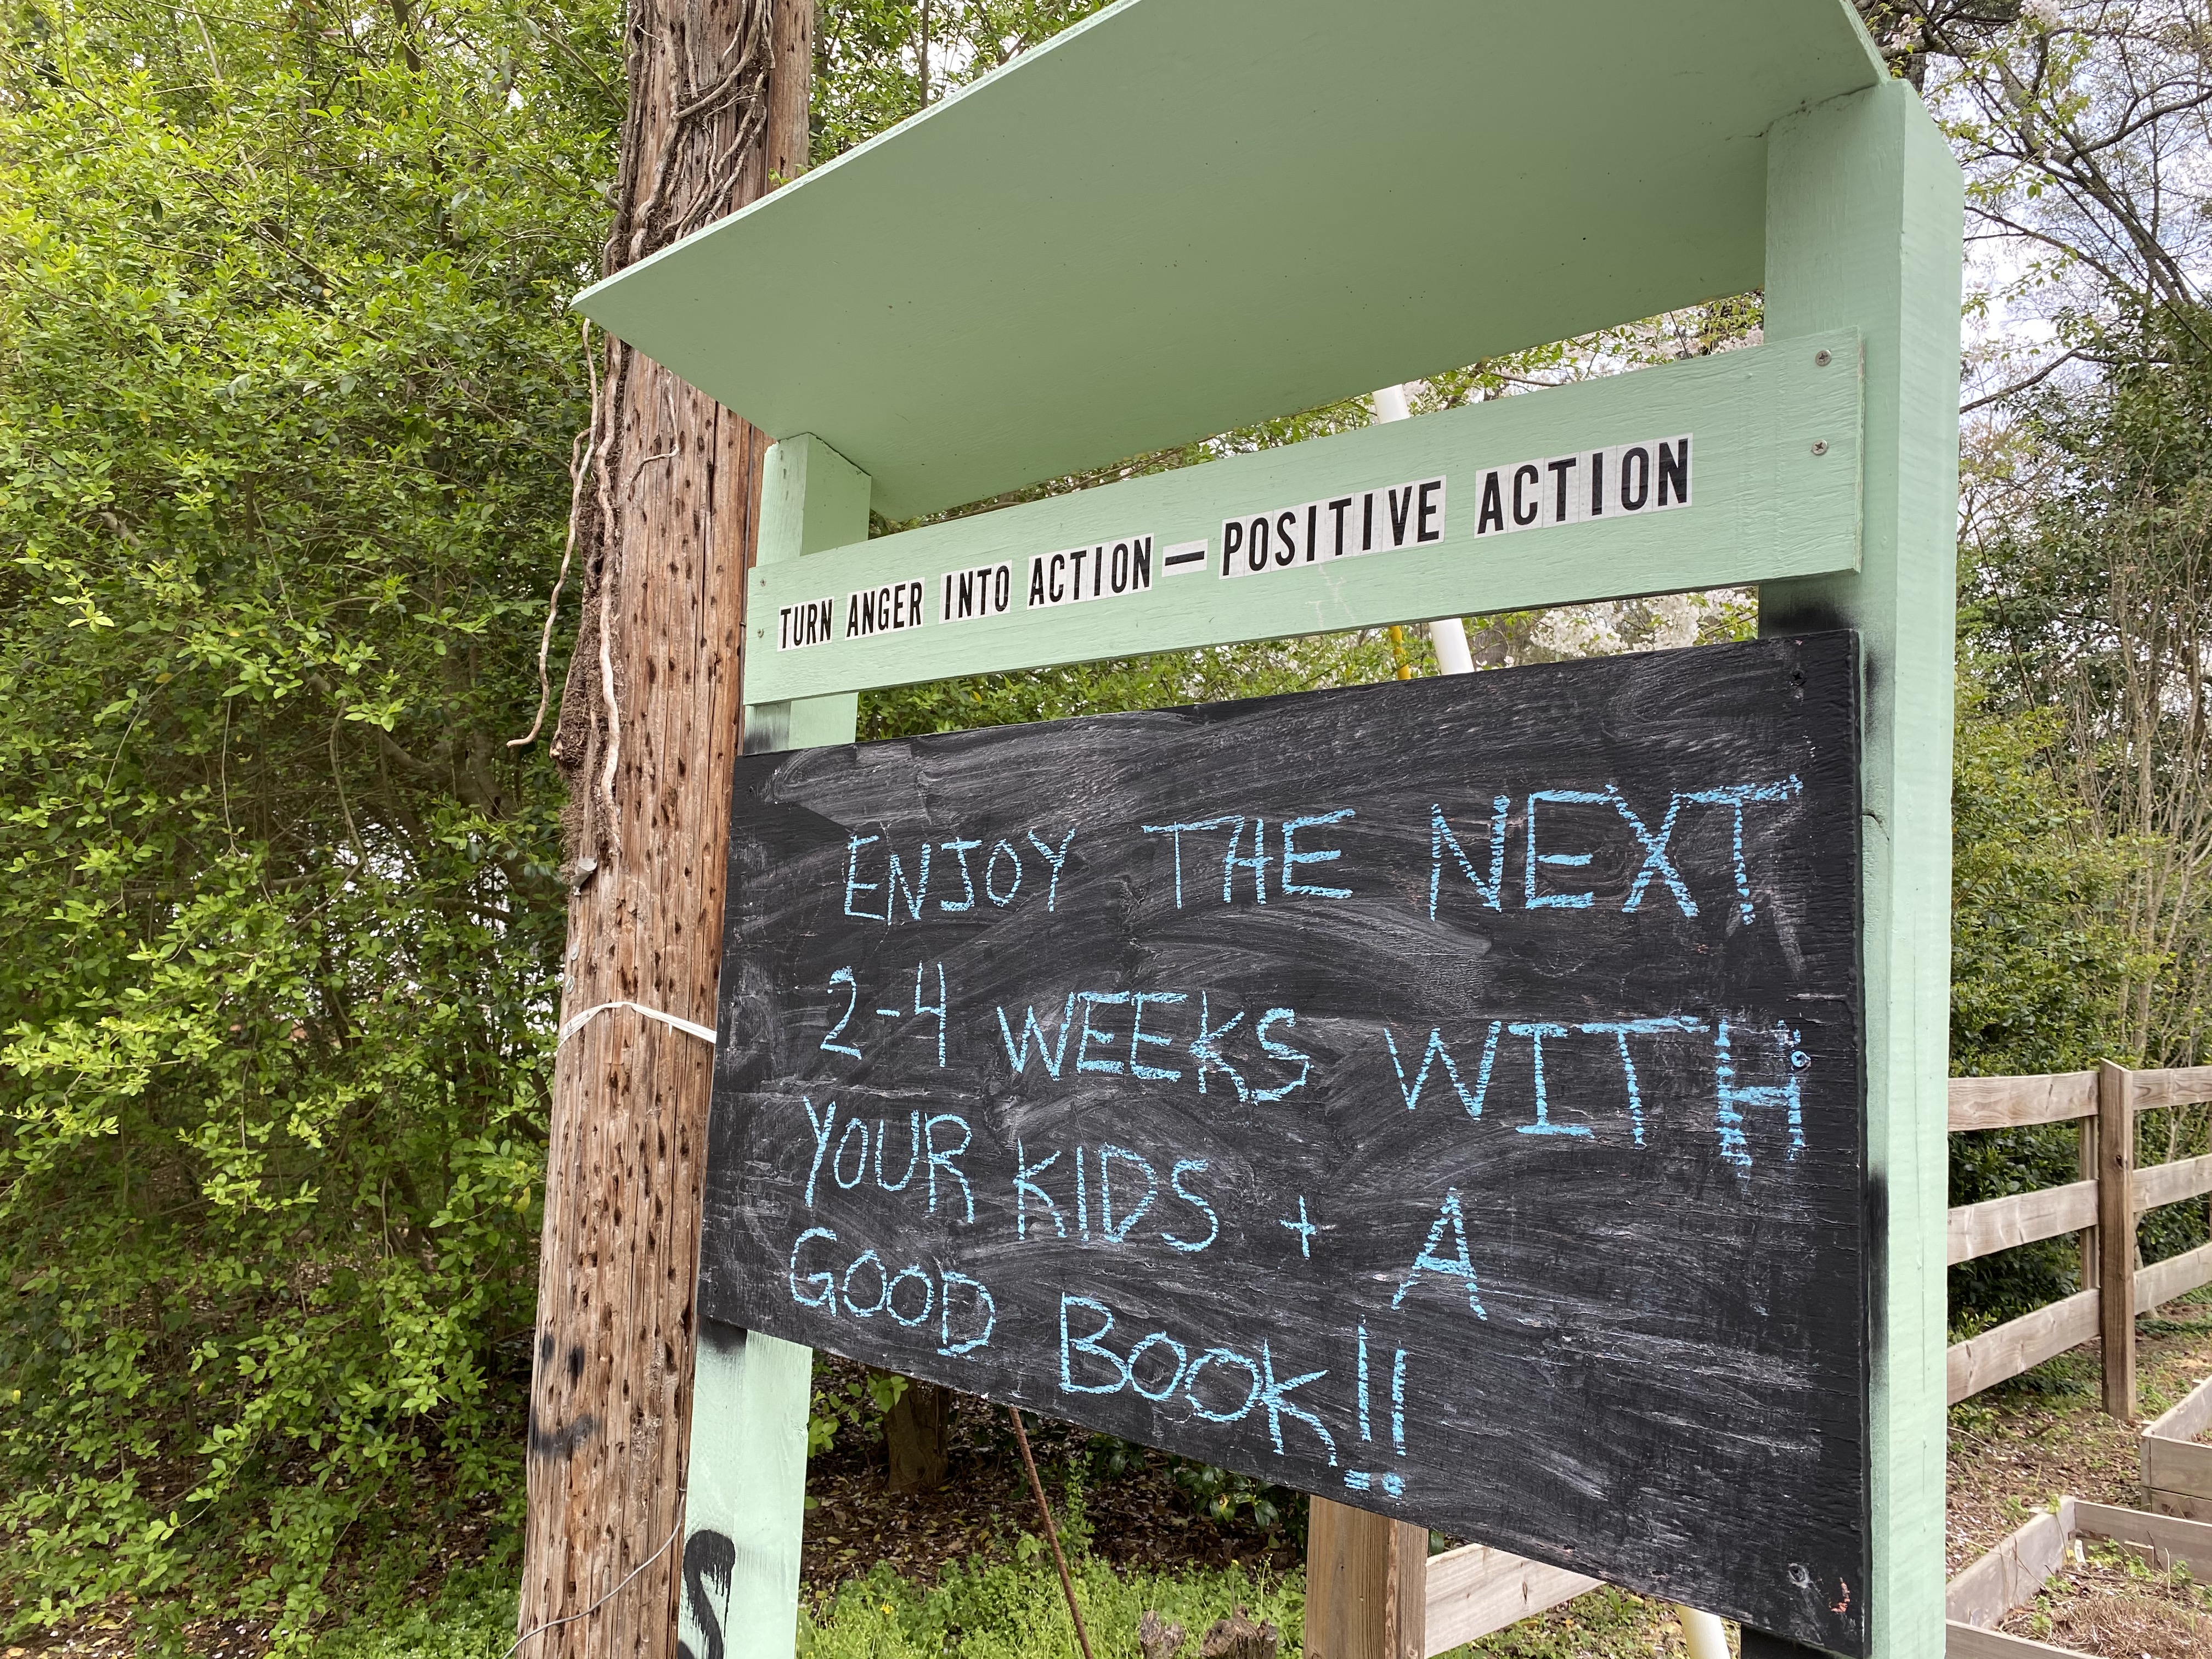 TURN ANGER INTO ACTION—POSITIVE ACTION
ENJOY THE NEXT
2-4 WEEKS WITH
YOUR KIDS + A
GOOD BOOK!!